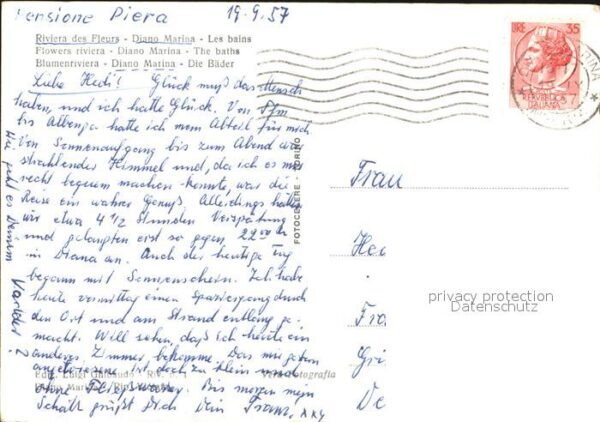 Pensione Piera 19.9.57
Riviera des Fleurs - Diano Marina - Les bains
Flowers riviera - Diano Marina - The baths
Blumenriviera - Diano Marina - Die Bäder
LIRE 35
REPVBBLICA
ITALIANA
Liebe Hedi! Glück muß das Mensch
haben, und ich hatte Glück. Von Ffm
bis Albenga hatte ich mein Abteil für mich
Von Sonnenaufgang bis zum Abend war
strahlender Himmel und, da ich es mir
recht bequem machen konnte, war die
Reise ein wahrer Genuß. Allerdings hatten
wir etwa 4 1/2 Stunden Verspätung
und gelangten erst so gegen 22 Uhr
in Diana an. Auch der heutige Tag
begann mit Sonnenschein. Ich habe
heute vormittag einen Spaziergang durch
den Ort und am Strand entlang ge-
macht. Will sehen, daß ich heute ein
anderes Zimmer bekomme. Das mir gestern
angewiesene ist doch zu klein und
ohne Fließwasser. Bis morgen mein
Schatz grüßt Dich Dein Franz.
Wie geht es Deinem
FOTOCELERE - TORINO
Frau
Hed
Fra
Gri
De
privacy protection
Datenschutz
Vera fotografia